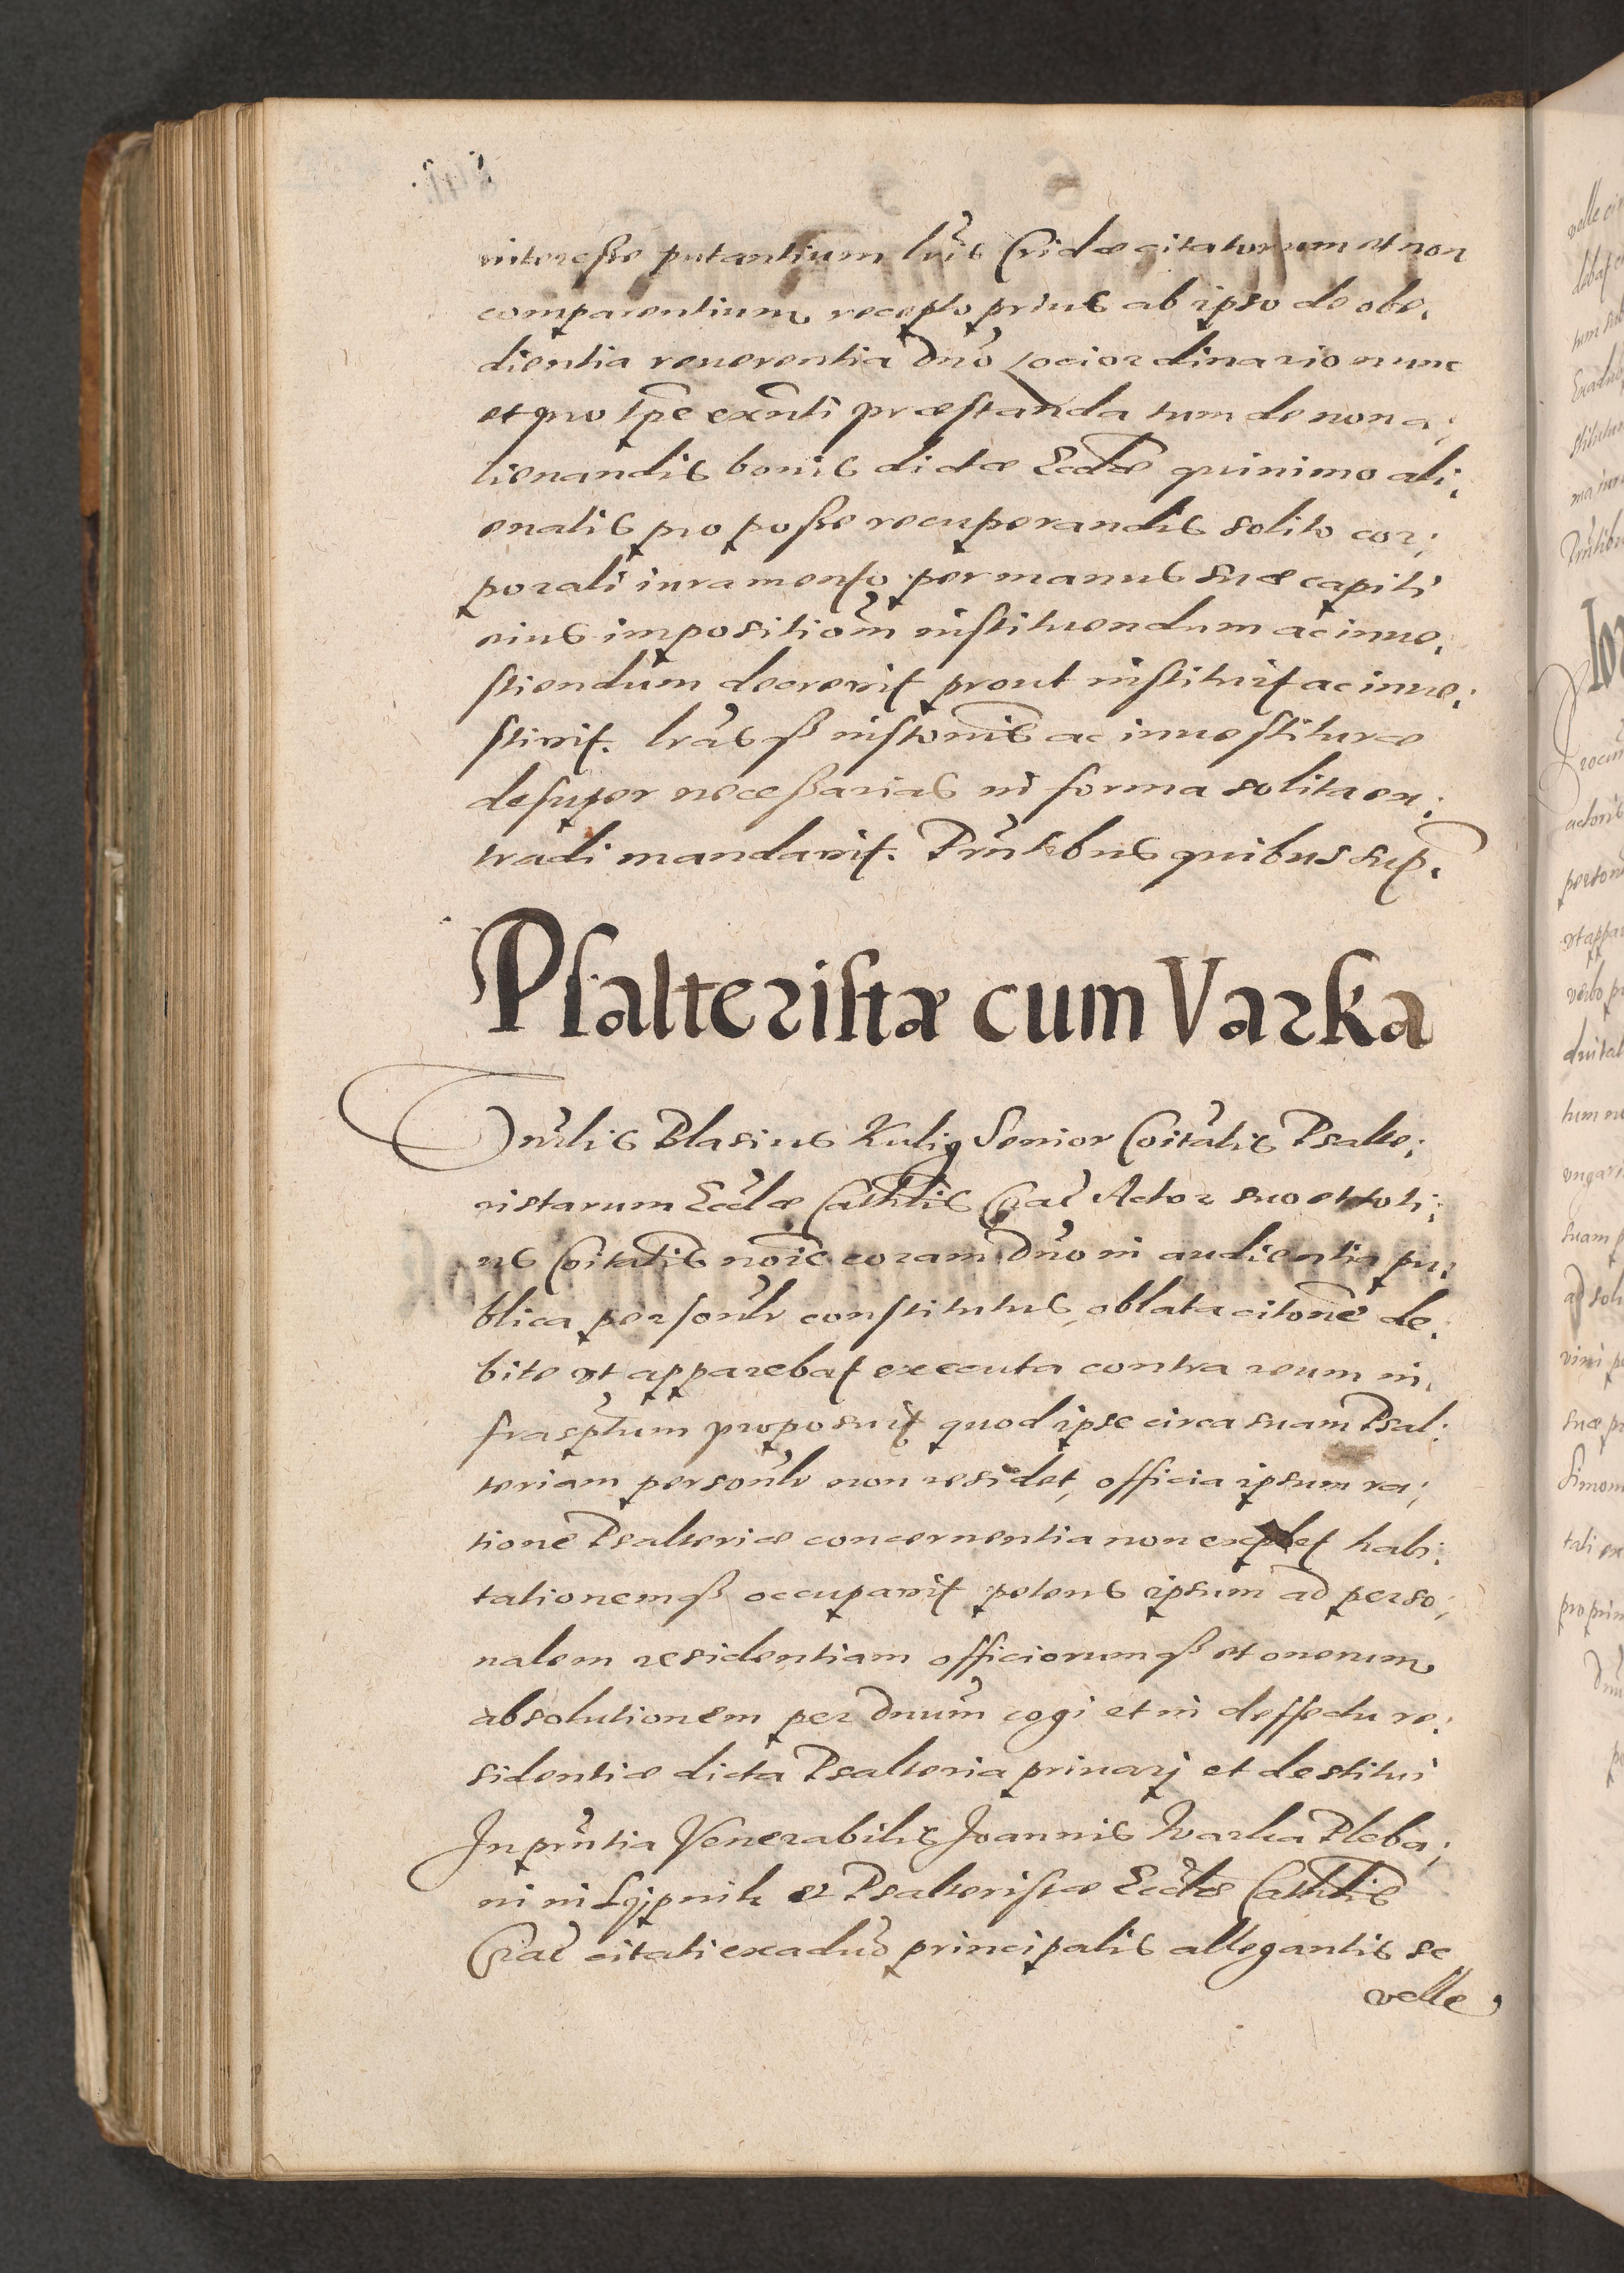 interesse putantium lris Cridæ citatorum et non
comparentium recepto prius ab ipso de obe:
dientia reuerentia Dno loci ordinario nunc
et pro tpe exnti præstanda tum de non a:
lienandis bonis dictæ Ecclæ quinimo ali:
enatis pro posse recuperandis solito cor:
porali iuramento per manus suæ capiti
eius impositiom instituendum ac inue:
stiendum decreuit prout instituit ac inue:
stiuit. lras q instonis ac inuestituræ
desuper necessarias in forma solita ex:
tradi mandauit. Prntibus quibus sup.
Psalteristæ cum Varka
Dnrlis Blasius Kulig Senior Coitatis Psalte:
ristarum Ecclæ Cathlis Crac Actor suo et toti:
us Coitatis noie coram Dno in audientia pu:
blica personlr constitutus, oblata citone de:
bite vt apparebat executa contra reum in:
frasptum proposuit quod ipse circa suam Psal:
teriam personlr non residet, officia ipsum ra:
tione Psalteriæ concernentia non explet habi:
tationemq occupauit petens ipsum ad perso:
nalem residentiam officiorumq et onerum
absolutionem per Dnum cogi et in deffectu re:
sidentiæ dicta Psalteria priuarj et destitui
In prntia Venerabilis Joannis Warka Pleba:
ni in Lypnik et Psalteristæ Ecclæ Cathlis
Crac citati ex aduo principalis allegantis se
velle